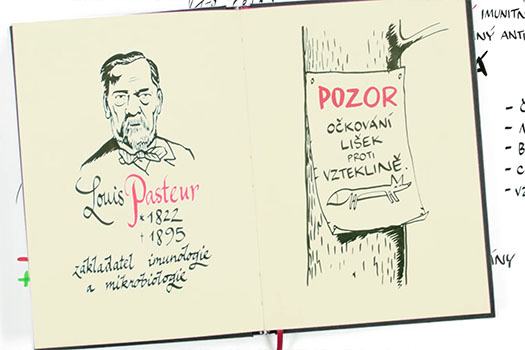 Louis Pasteur
* 1822
† 1895
zakladatel imunologie
a mikrobiologie
POZOR
OČKOVÁNÍ
LIŠEK
PROTI
VZTEKLINĚ
IMUNITN
NÝ ANT